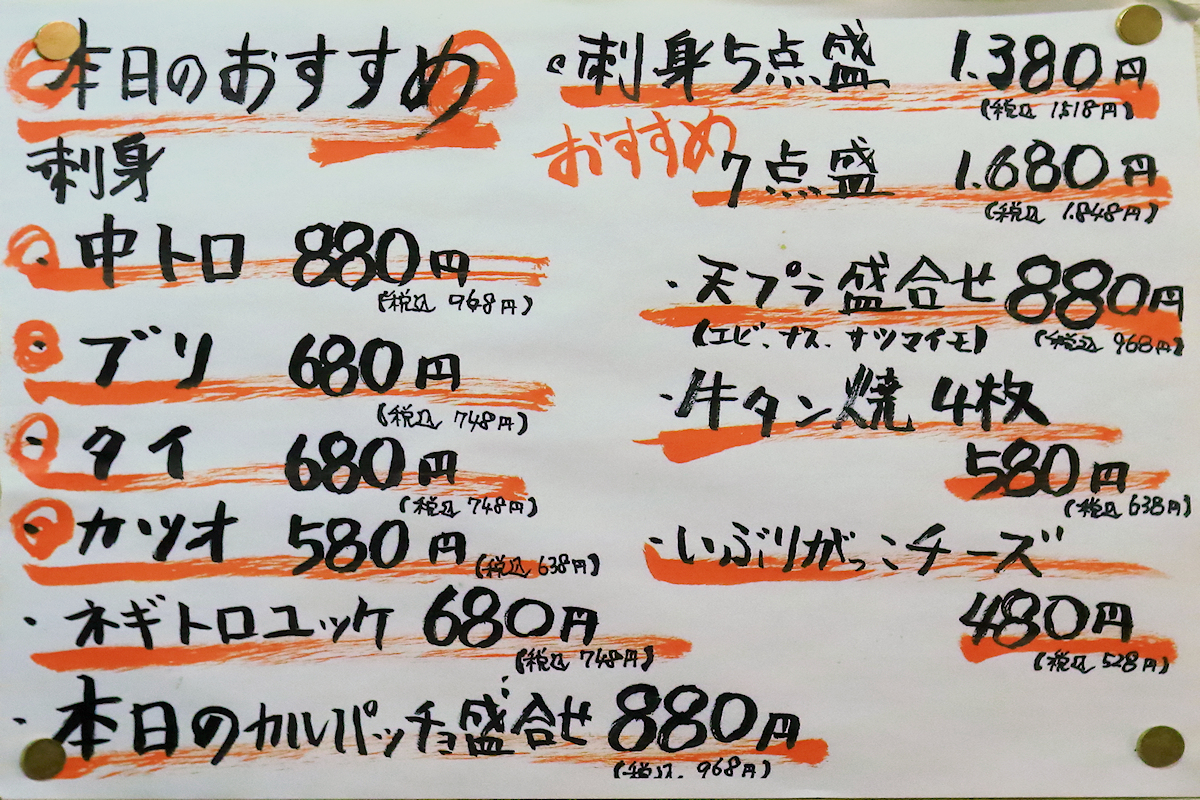 本日のおすすめ
刺身
・中トロ 880円
(税込 968円)
・ブリ 680円
(税込 748円)
・タイ 680円
(税込 748円)
・カツオ 580円
(税込 638円)
・ネギトロユッケ 680円
(税込 748円)
・本日のカルパッチョ盛合せ 880円
(税込 968円)
・刺身5点盛 1.380円
(税込 1518円)
おすすめ
7点盛 1.680円
(税込 1.848円)
・天プラ盛合せ 880円
(エビ、ナス、サツマイモ) (税込 968円)
・牛タン焼 4枚
580円
(税込 638円)
・いぶりがっこチーズ
480円
(税込 528円)